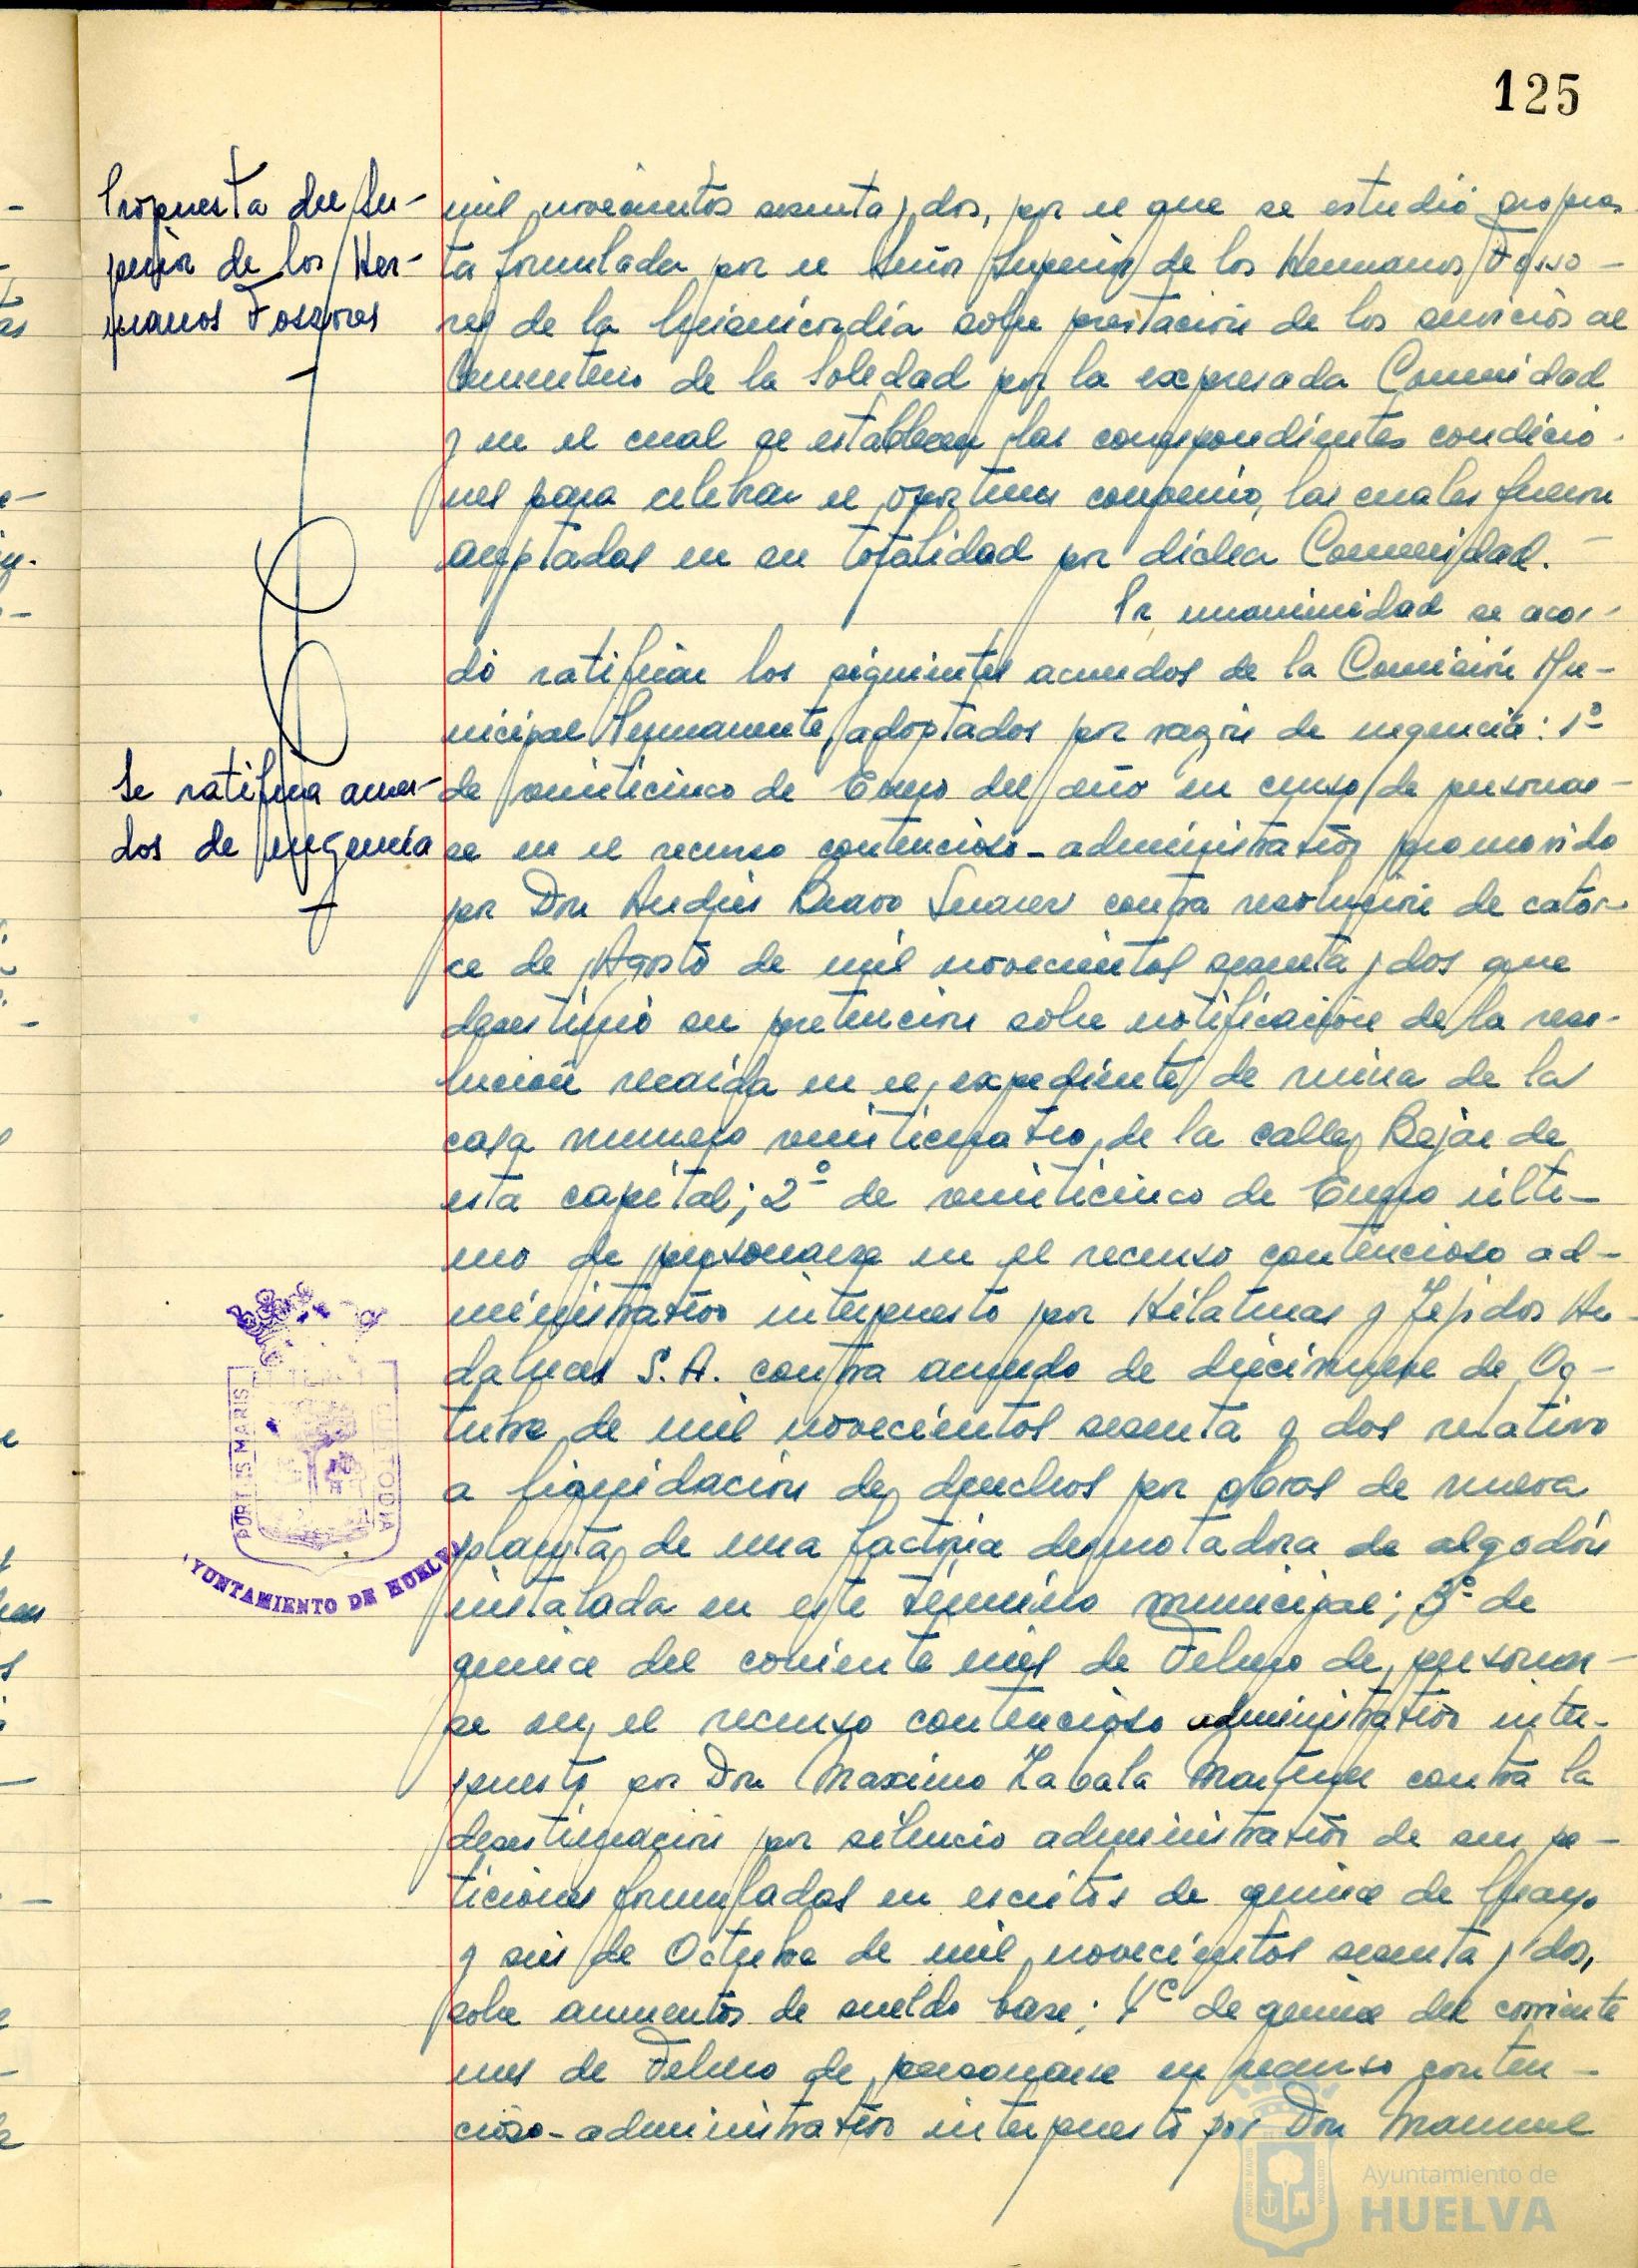 125
Propuesta del Su-
perior de los Her-
manos Fossores
mil novecientos sesenta y dos, por el que se estudió propues-
ta formulada por el Señor Superior de los Hermanos Fosso-
res de la Misericordia sobre prestación de los servicios al
Cementerio de la Soledad por la expresada Comunidad
y en el cual se establecen las correspondientes condicio-
nes para celebrar el oportuno convenio, las cuales fueron
aceptadas en su totalidad por dicha Comunidad. -
Por unanimidad se acor-
dó ratificar los siguientes acuerdos de la Comisión Mu-
nicipal Permanente, adoptados por razón de urgencia: 1º
Se ratifica acuer-
dos de urgencia
de veinticinco de Enero del año en curso de personar-
se en el recurso contencioso-administrativo promovido
por Don Andrés Bravo Suarez contra resolución de cator-
ce de Agosto de mil novecientos sesenta y dos que
desestimó su pretención sobre notificación de la reso-
lución recaída en el expediente de ruina de la
casa numero veinticuatro de la calle Bejar de
esta capital; 2º de veinticinco de Enero ulti-
mo de personarse en el recurso contencioso ad-
ministrativo interpuesto por Hilaturas y Tejidos An-
daluces S.A. contra acuerdo de diecinueve de Oc-
tubre de mil novecientos sesenta y dos relativo
a liquidación de derechos por obras de nueva
planta de una factoria desmotadora de algodón
instalada en este término municipal; 3º de
quince del corriente mes de Febrero de personar-
se en el recurso contencioso administrativo inter-
puesto por Don Maximo Zabala Martinez contra la
desestimación por silencio administrativo de sus pe-
ticiones formuladas en escritos de quince de Mayo
y seis de Octubre de mil novecientos sesenta y dos,
sobre aumentos de sueldo base; 4º de quince del corriente
mes de Febrero de personarse en recurso conten-
cioso-administrativo interpuesto por Don Manuel
PORTUS MARIS
CUSTODIA
AYUNTAMIENTO DE HUELVA
Ayuntamiento de
HUELVA